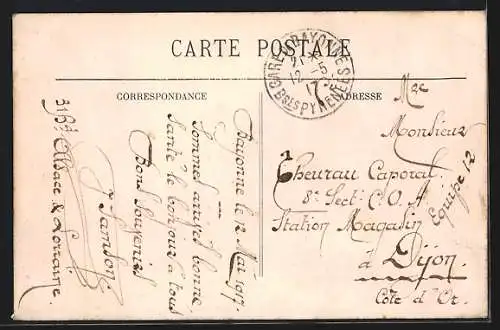 CARTE POSTALE
GARE DE BAYONNE
21 *
12 - 5
17
Bses PYRÉNÉES
CORRESPONDANCE
ADRESSE
Bayonne le 12 Mai 1917
Sommes arrivés bonne
Santé le bonjour à tous
Bons Souvenirs
J. Sambon
31 Bd Alsace & Lorraine
Mr
Monsieur
Theurau Caporal
8e Sect: C. O. A
Station Magasin
à Dijon
Côte d'Or.
Equipe 12